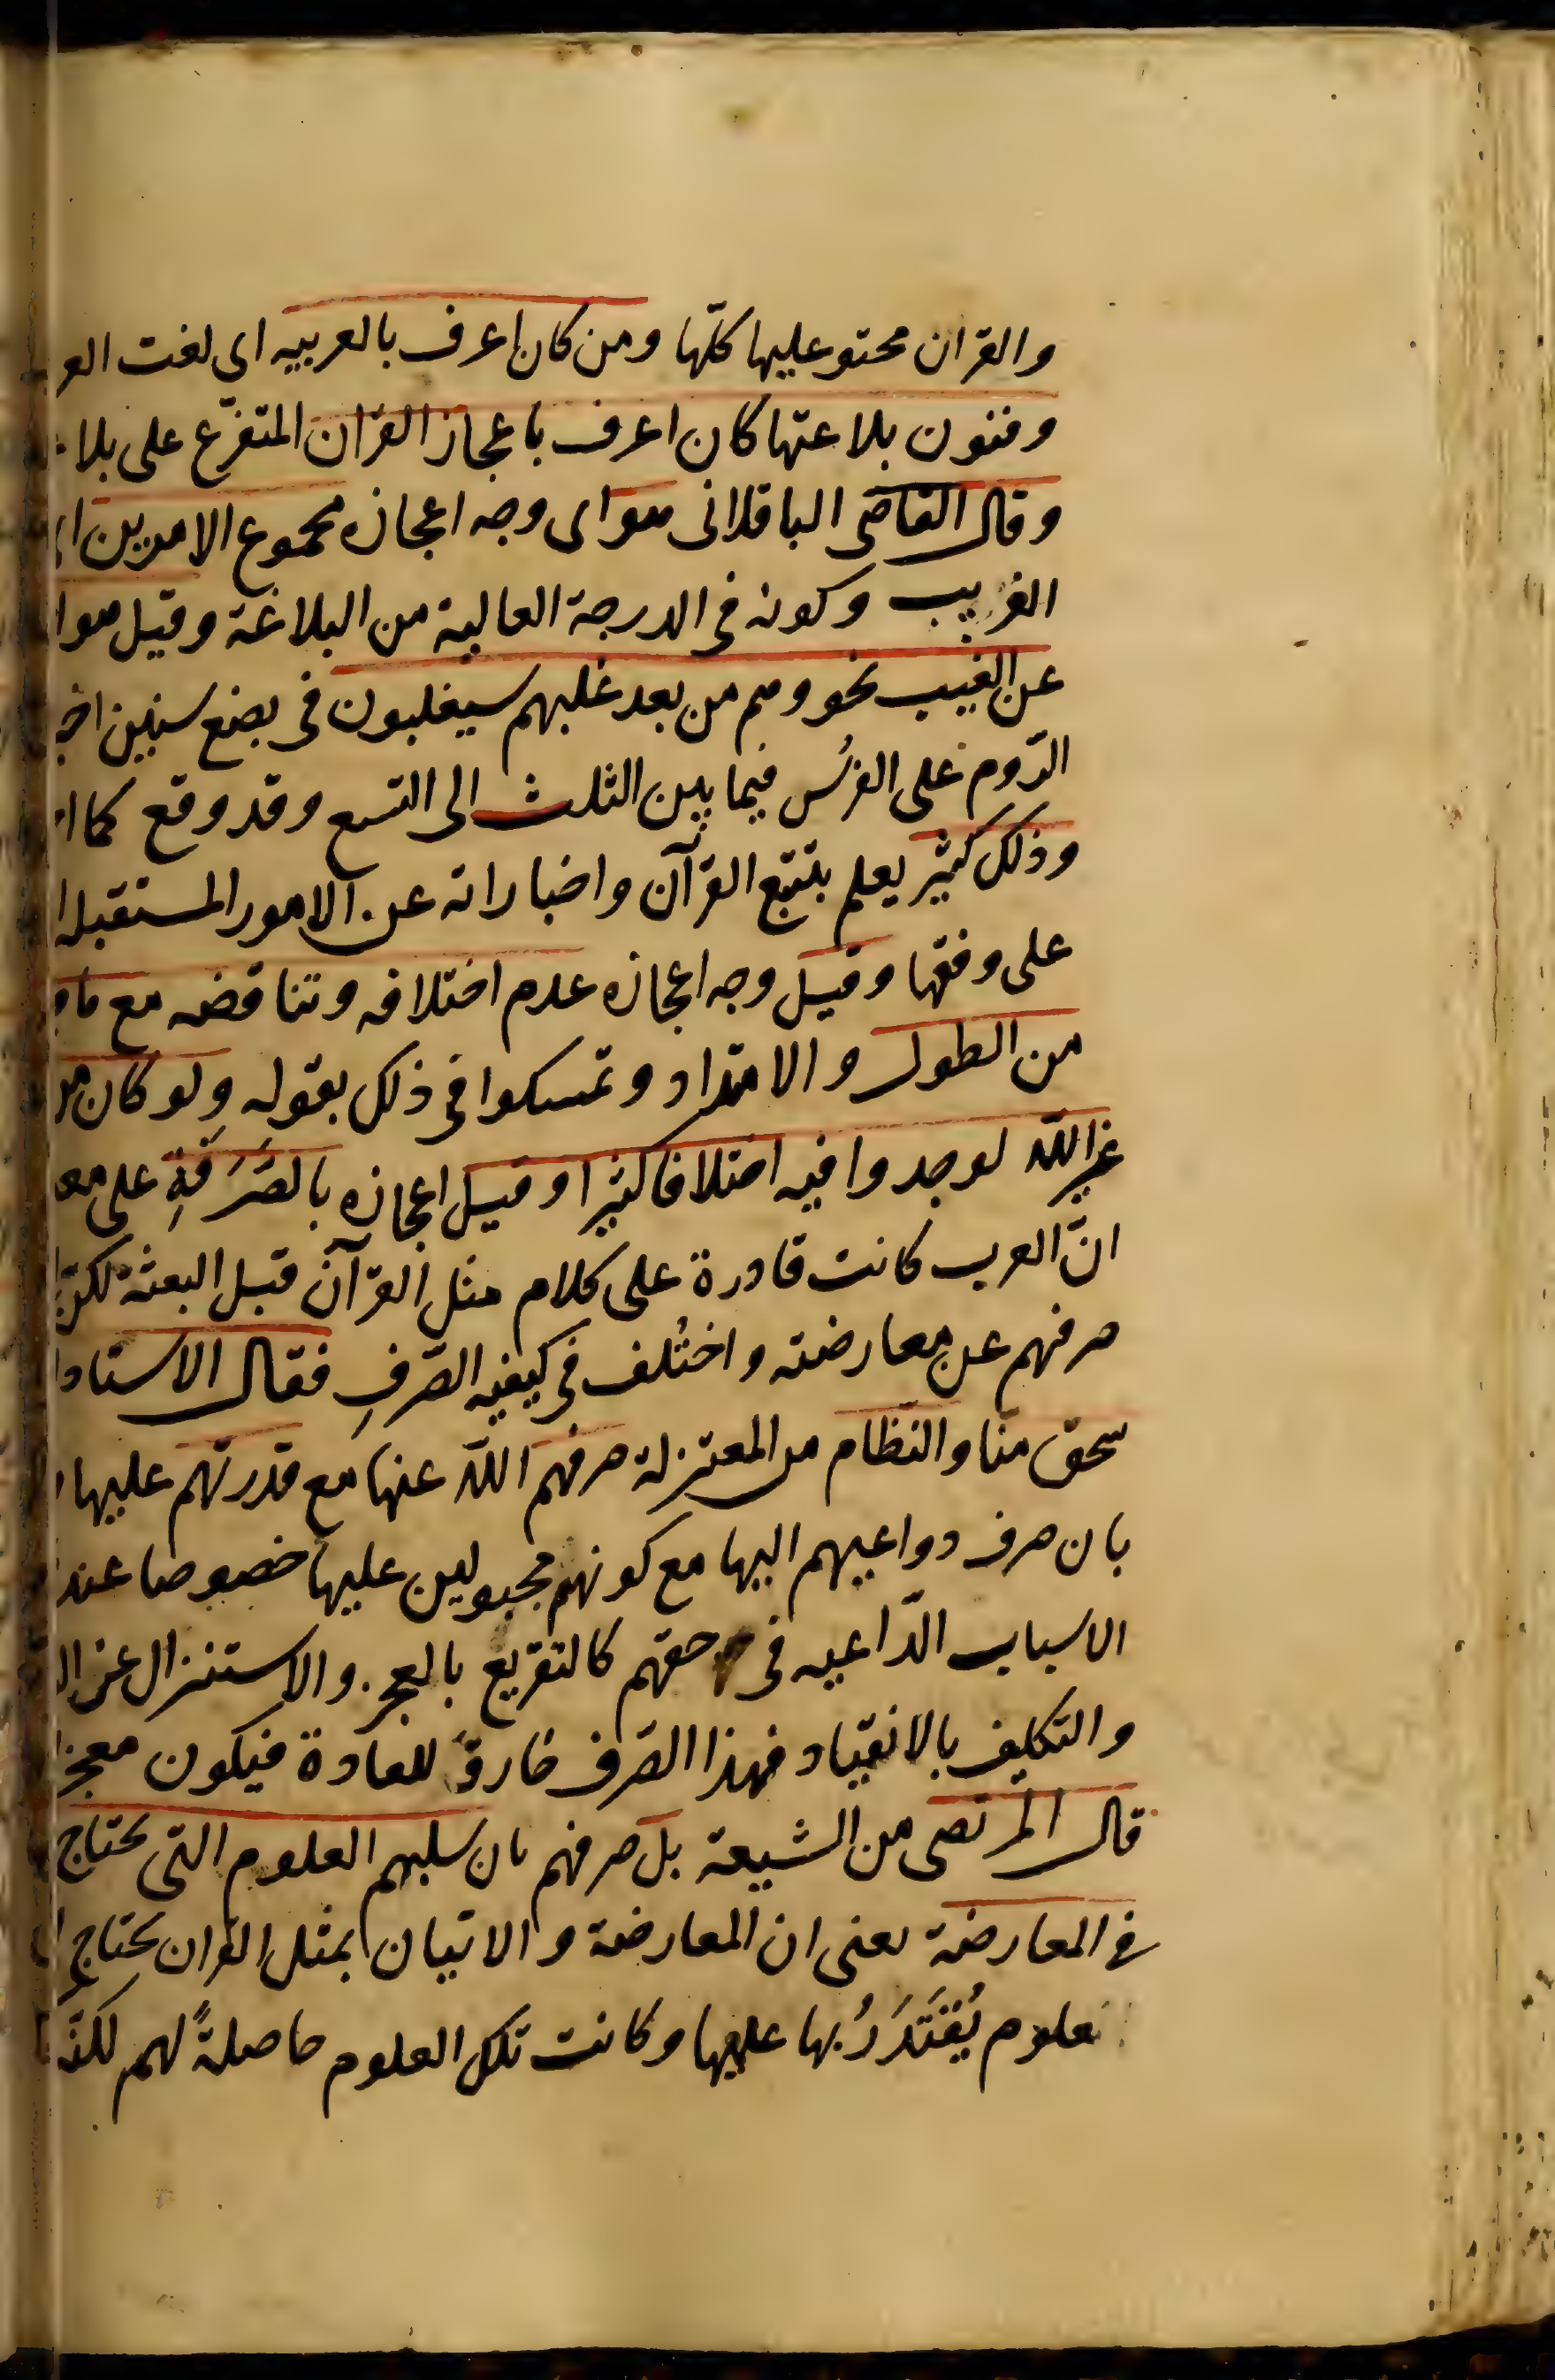 والقران محتو عليها كلّها ومن كان اعرف بالعربيه اى لغت العر
وفنون بلاغتها كان اعرف باعجاز القران المتفرّع على بلا
وقال القاضى الباقلانى هو اى وجه اعجازه مجموع الامرين
الغريب وكونه فى الدرجة العالية من البلاغة وقيل هو
عن الغيب نحو وهم من بعد غلبهم سيغلبون فى بضع سنين اخ
الرّوم على الفرُس فيما بين الثلث الى التسع وقد وقع كما
وذلك كثير يعلم بتتبع القرآن واخباراته عن الامور المستقبله
على وفقها وقيل وجه اعجازه عدم اختلافه وتناقضه مع ما
من الطول والامتداد وتمسكوا فى ذلك بقوله ولو كان من
غير اللّه لوجدوا فيه اختلافا كثيرا وقيل اعجازه بالصَرَفَةِ على مع
انّ العرب كانت قادرة على كلام مثل القرآن قبل البعثة لكنّ
صرفهم عن معارضته واختُلف فى كيفيه الصّرفِ فقال الاستاد ا
سحق منّا والنظّام من المعتزلة صرفهم اللّه عنها مع قدرتهم عليها
بان صرف دواعيهم اليها مع كونهم مجبولين عليها خصوصا عند
الاسباب الدّاعيه فى حقهم كالتقريع بالعجز والاستنزال عن ال
والتكليف بالانقياد فهذا الصّرف خارق للعادة فيكون معجز
قال المرتضى من الشيعة بل صرفهم بان سلبهم العلوم التى يحتاج
فى المعارضة يعنى ان المعارضة والاتيان بمثل القران يحتاج
علوم يُقْتَدَرُ بها عليها وكانت تلك العلوم حاصلةً لهم لكنّه